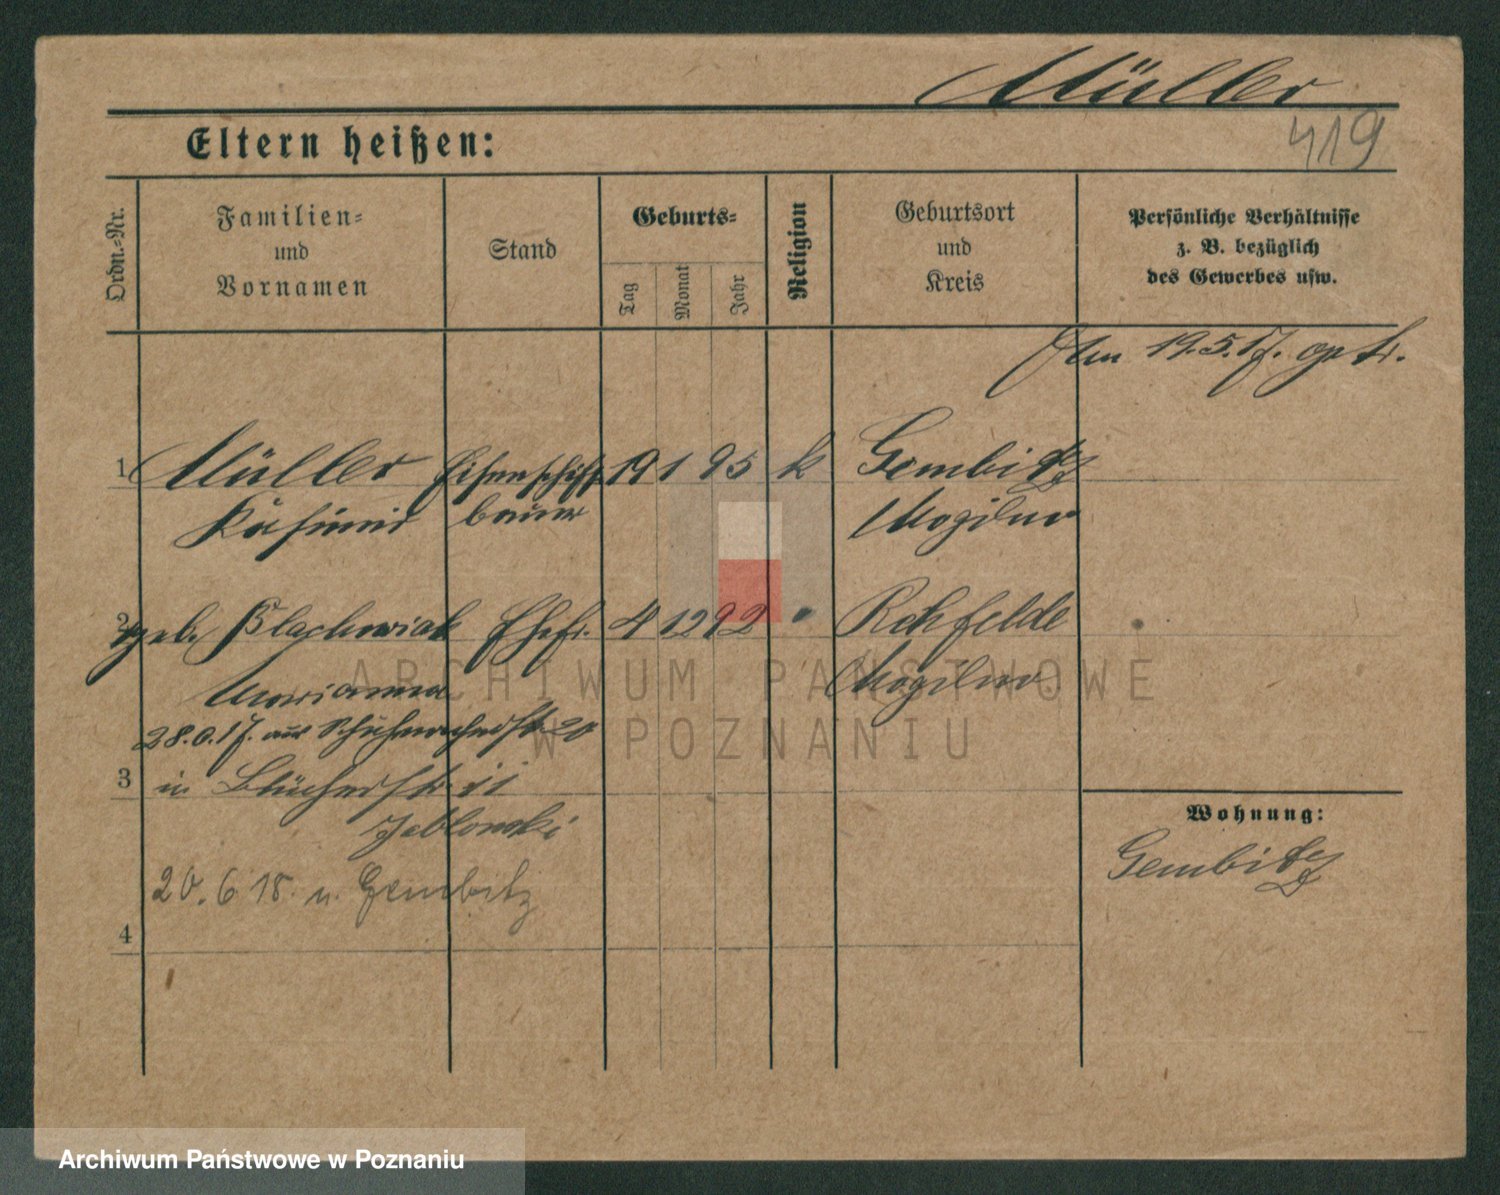 Müller
419
Eltern heißen:
Ordn.-Nr.
Familien-
und
Vornamen
Stand
Geburts-
Tag
Monat
Jahr
Religion
Geburtsort
und
Kreis
Persönliche Verhältnisse
z. B. bezüglich
des Gewerbes usw.
19.5.17.
1 Müller Eisenschiff 19 1 95 k Gembitz
Kasimir bauer Mogilno
2 geb. Blachowiak Ehefr. 4 12 92 " Rehfelde
Marianna Mogilno
28.6.17. aus Schuhmacherstr. 20
3 in Blücherstr. 11
Jablonski
Wohnung:
Gembitz
20.6.18. n. Gembitz
4
ARCHIWUM PAŃSTWOWE
W POZNANIU
Archiwum Państwowe w Poznaniu